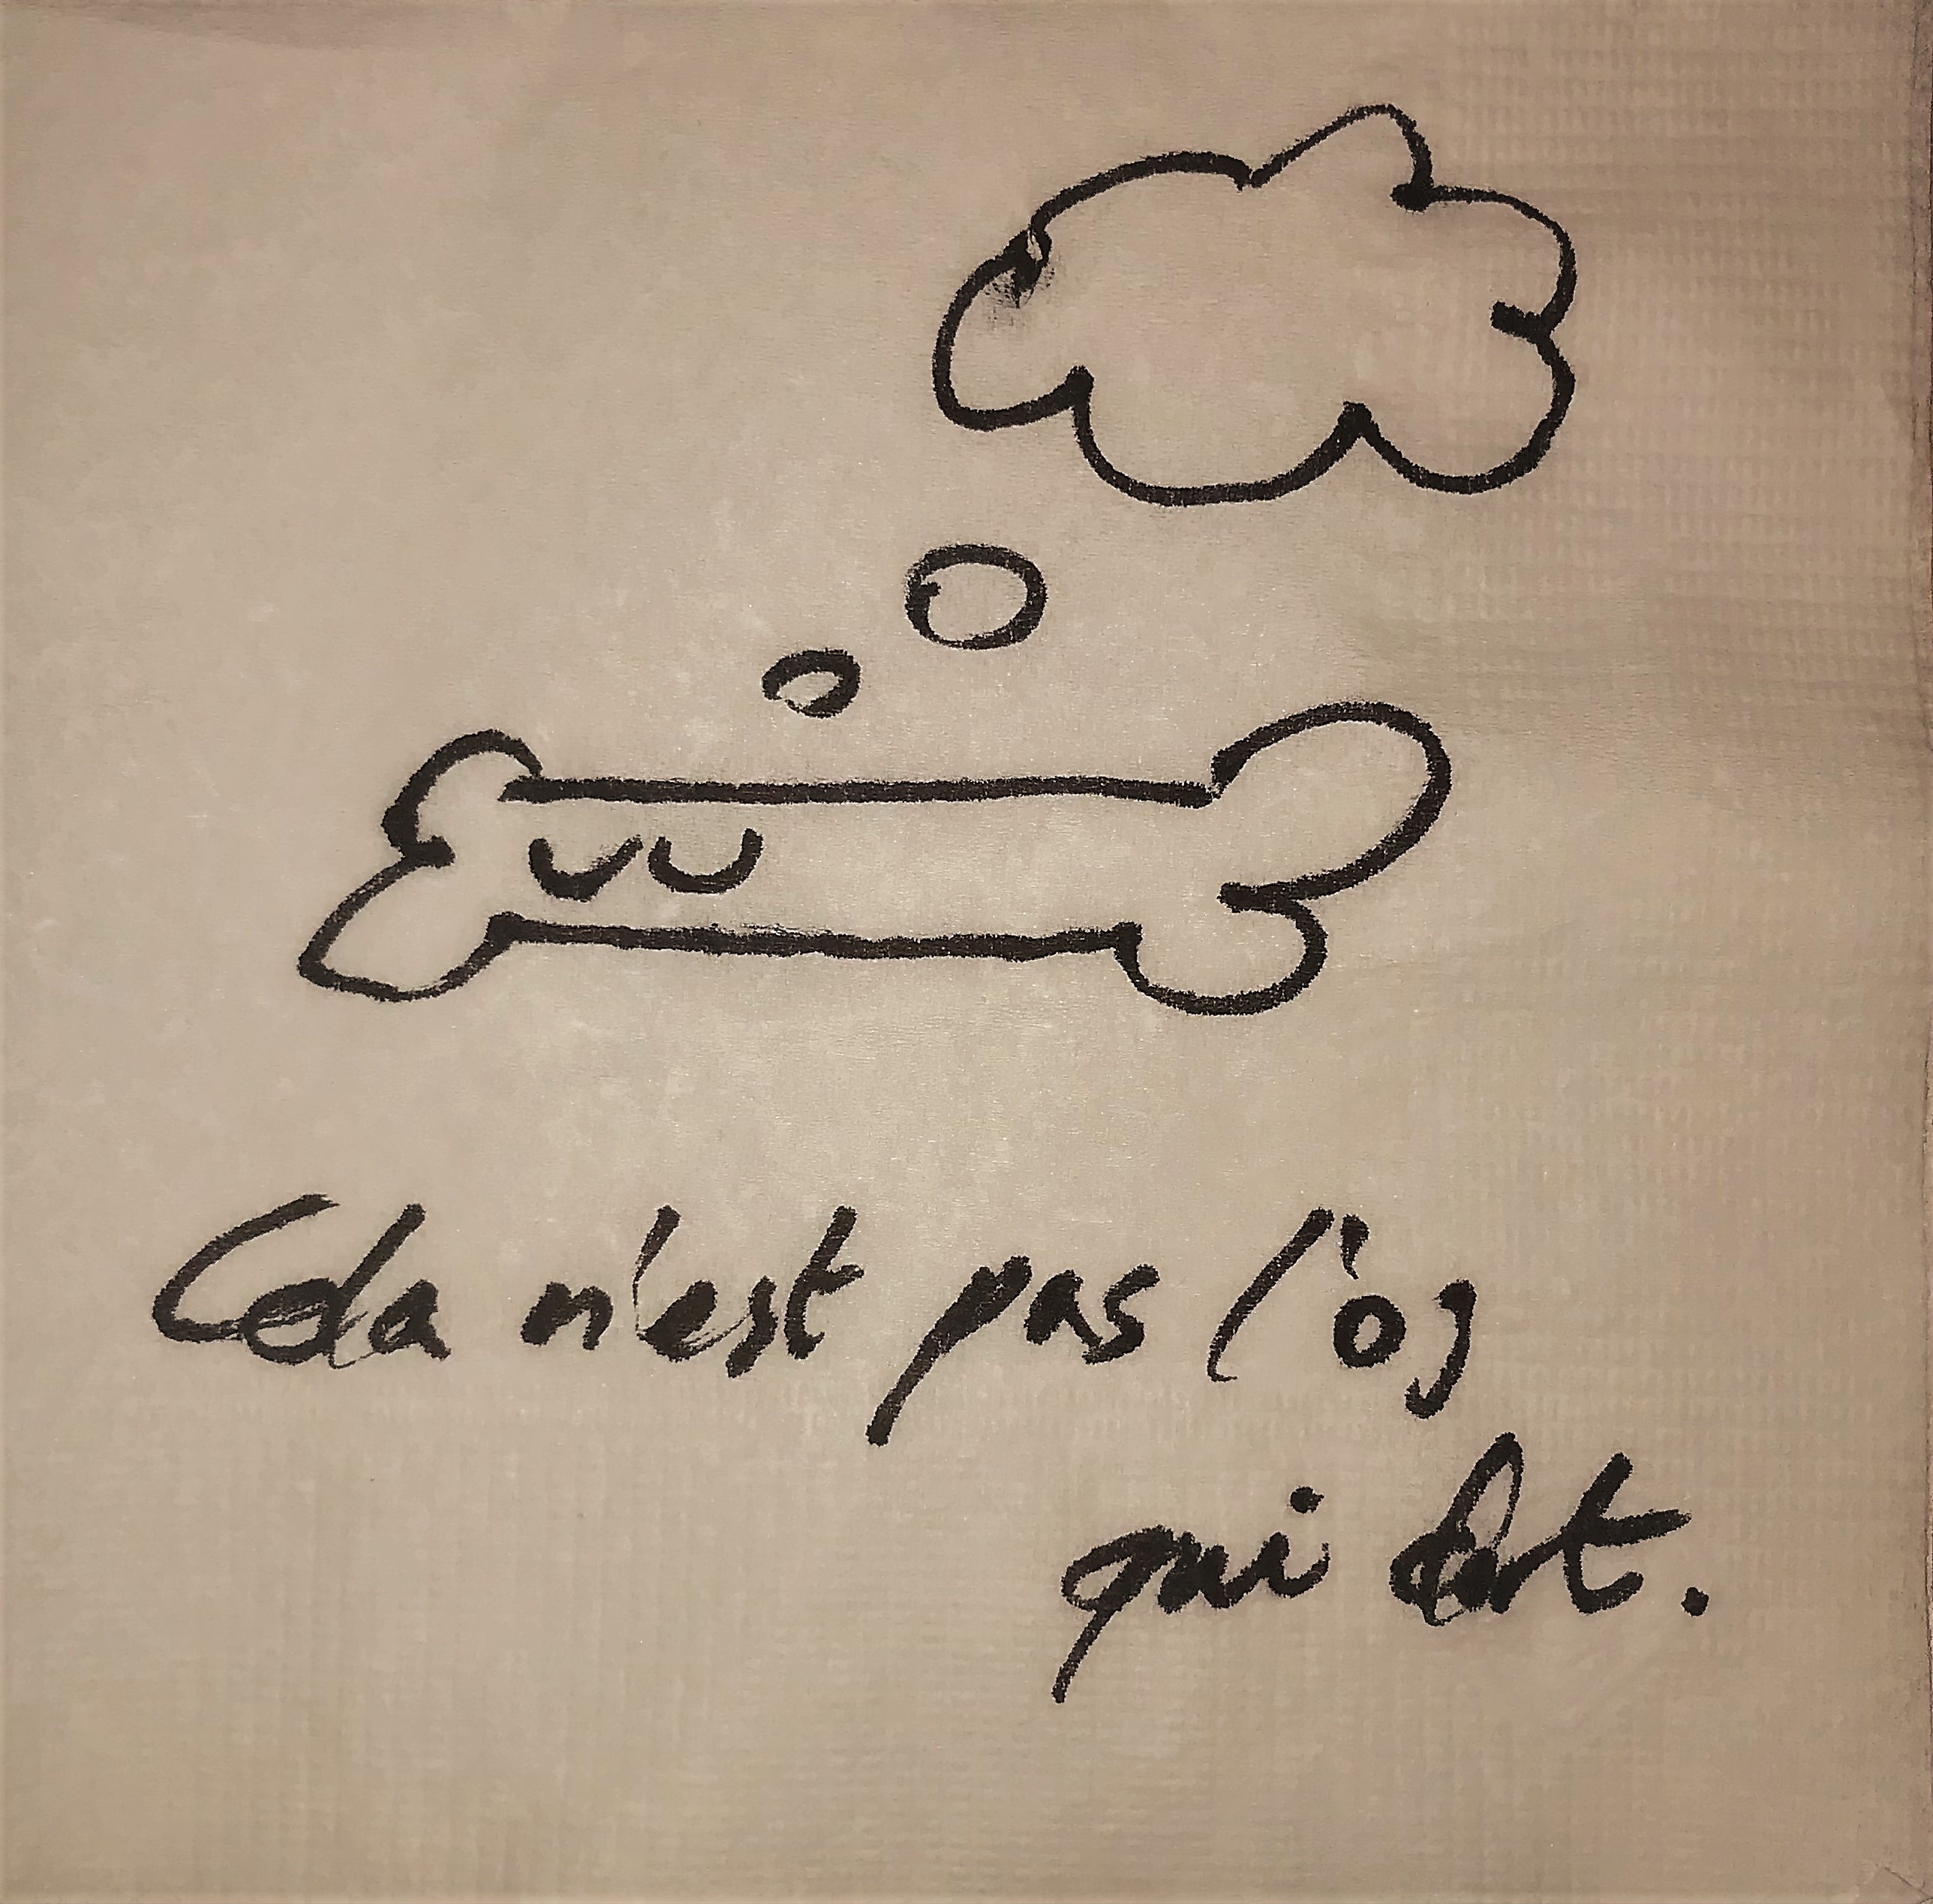 Cela n'est pas l'os
qui dort.